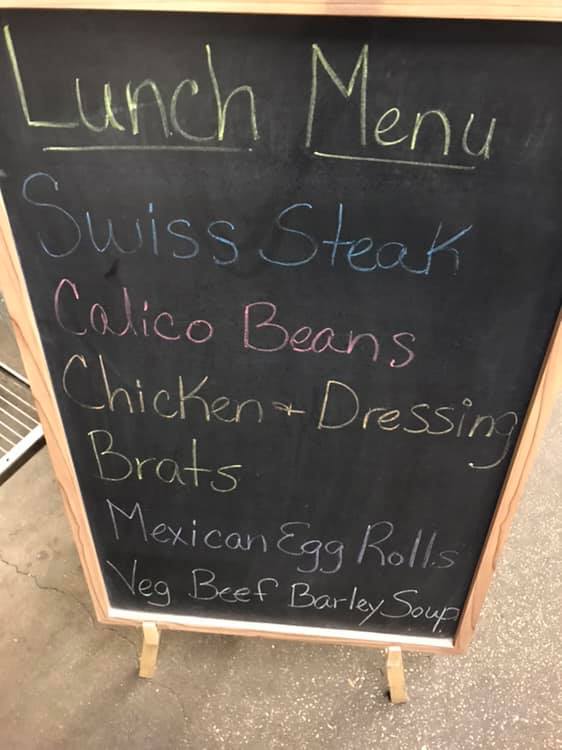 Lunch Menu
Swiss Steak
Calico Beans
Chicken + Dressing
Brats
Mexican Egg Rolls
Veg Beef Barley Soup